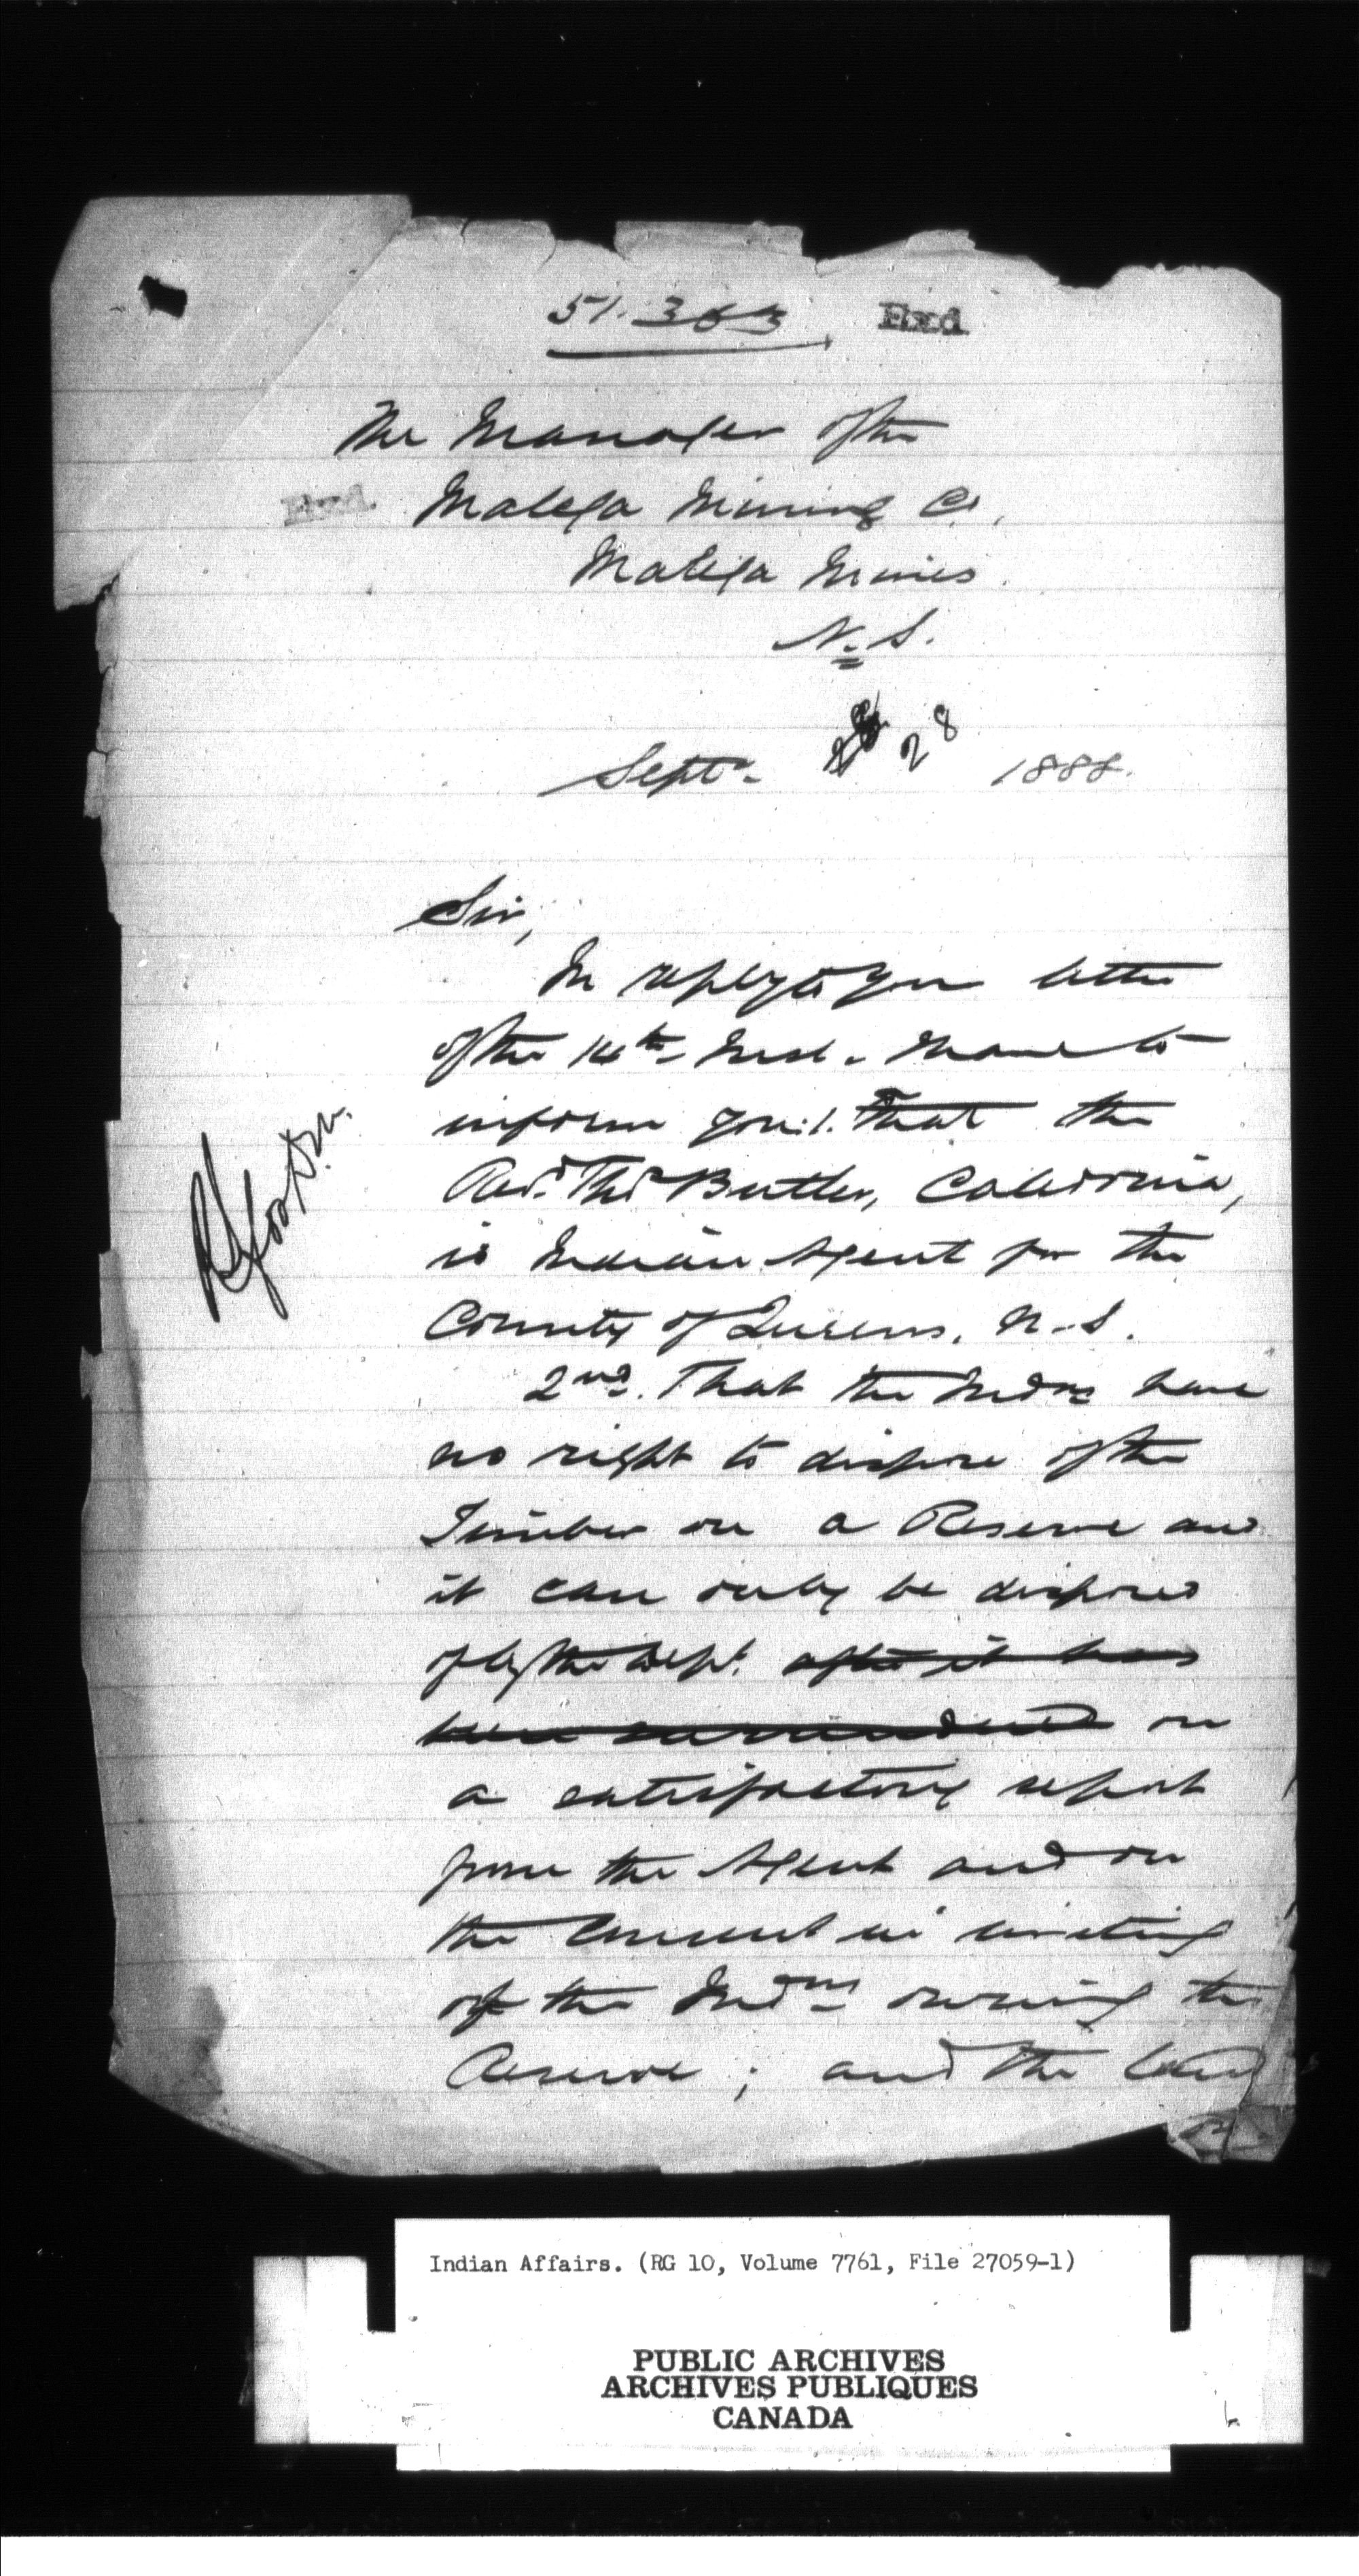 51.363 Exd
The Manager of the
Exd Malega Mining Co.
Malega Mines.
N.S.
Sept. 28 1888.
Sir,
In reply to your letter
of the 14th Inst. I have to
inform you: 1. That the
Revd. Thos Butler, Caledonia,
is Indian Agent for the
County of Queens, N.S.
2nd. That the Indns have
no right to dispose of the
Timber on a Reserve and
it can only be disposed
of by the Dept. after it has
been surrendered on
a satisfactory report
from the Agent and on
the consent in writing
of the Indns owning the
Reserve; and the land
Indian Affairs. (RG 10, Volume 7761, File 27059-1)
PUBLIC ARCHIVES
ARCHIVES PUBLIQUES
CANADA